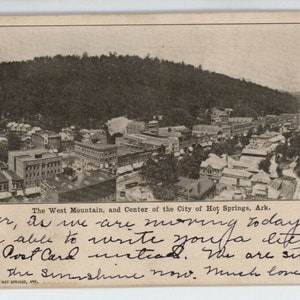 The West Mountain, and Center of the City of Hot Springs, Ark.
as we are moving today
able to write you a
Post Card instead. We are
the sunshine now. Much love
HOT SPRINGS, ARK.